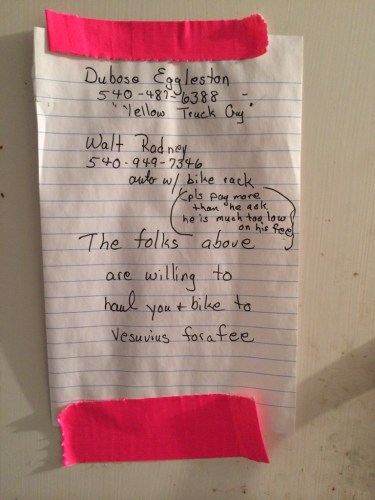 Dubose Eggleston
540-487-6388 -
"Yellow Truck Guy"
Walt Rodney
540-949-7346
auto w/ bike rack
(pls pay more
than he ask
he is much too low
on his fee)
The folks above
are willing to
haul you + bike to
Vesuvius for a fee